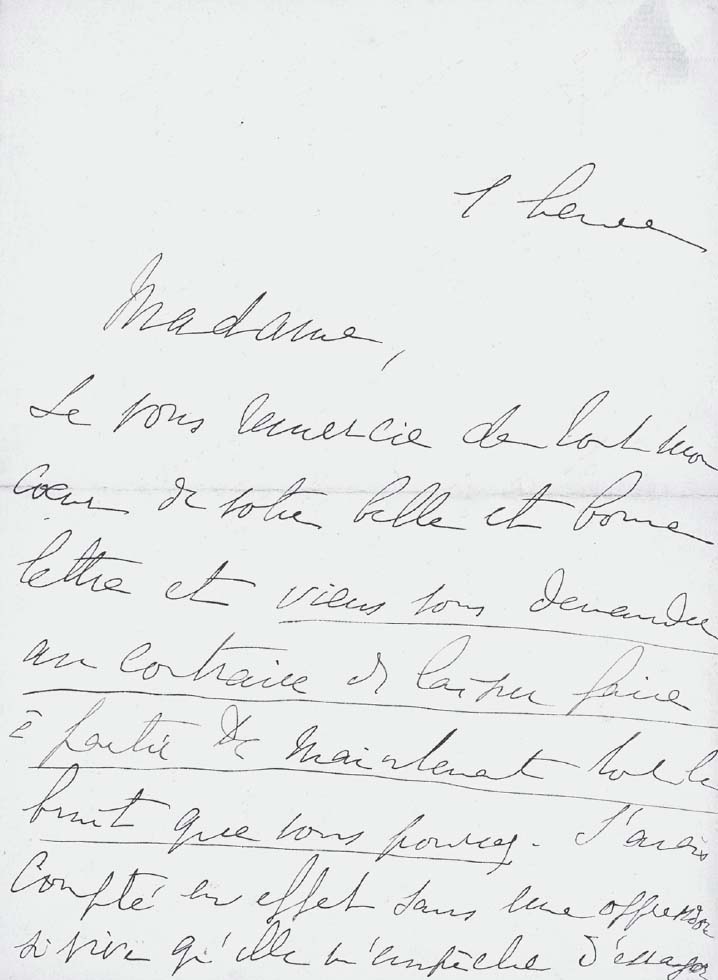 1 heure
Madame,
Je vous remercie de tout mon
cœur de votre belle et bonne
lettre et viens vous demander
au contraire de laisser faire
à partir de maintenant tout le
bruit que vous pouvez. J'avais
compté en effet sans une oppression
si vive qu'elle m'empêche d'essayer